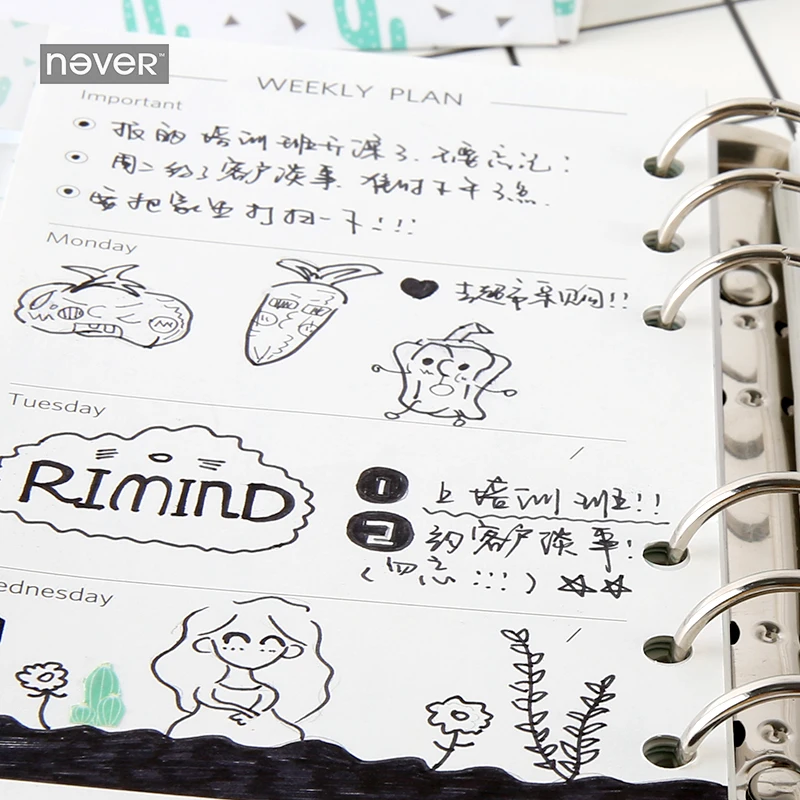 never™
WEEKLY PLAN
Important
报的培训班开课了.不要忘记!
周二约了客户谈事.准时下午3点.
要把家里打扫一下!!!
Monday
去超市采购!!
Tuesday
RIMIND
1 上培训班!!
2 约客户谈事!
(勿忘!!!)
ednesday